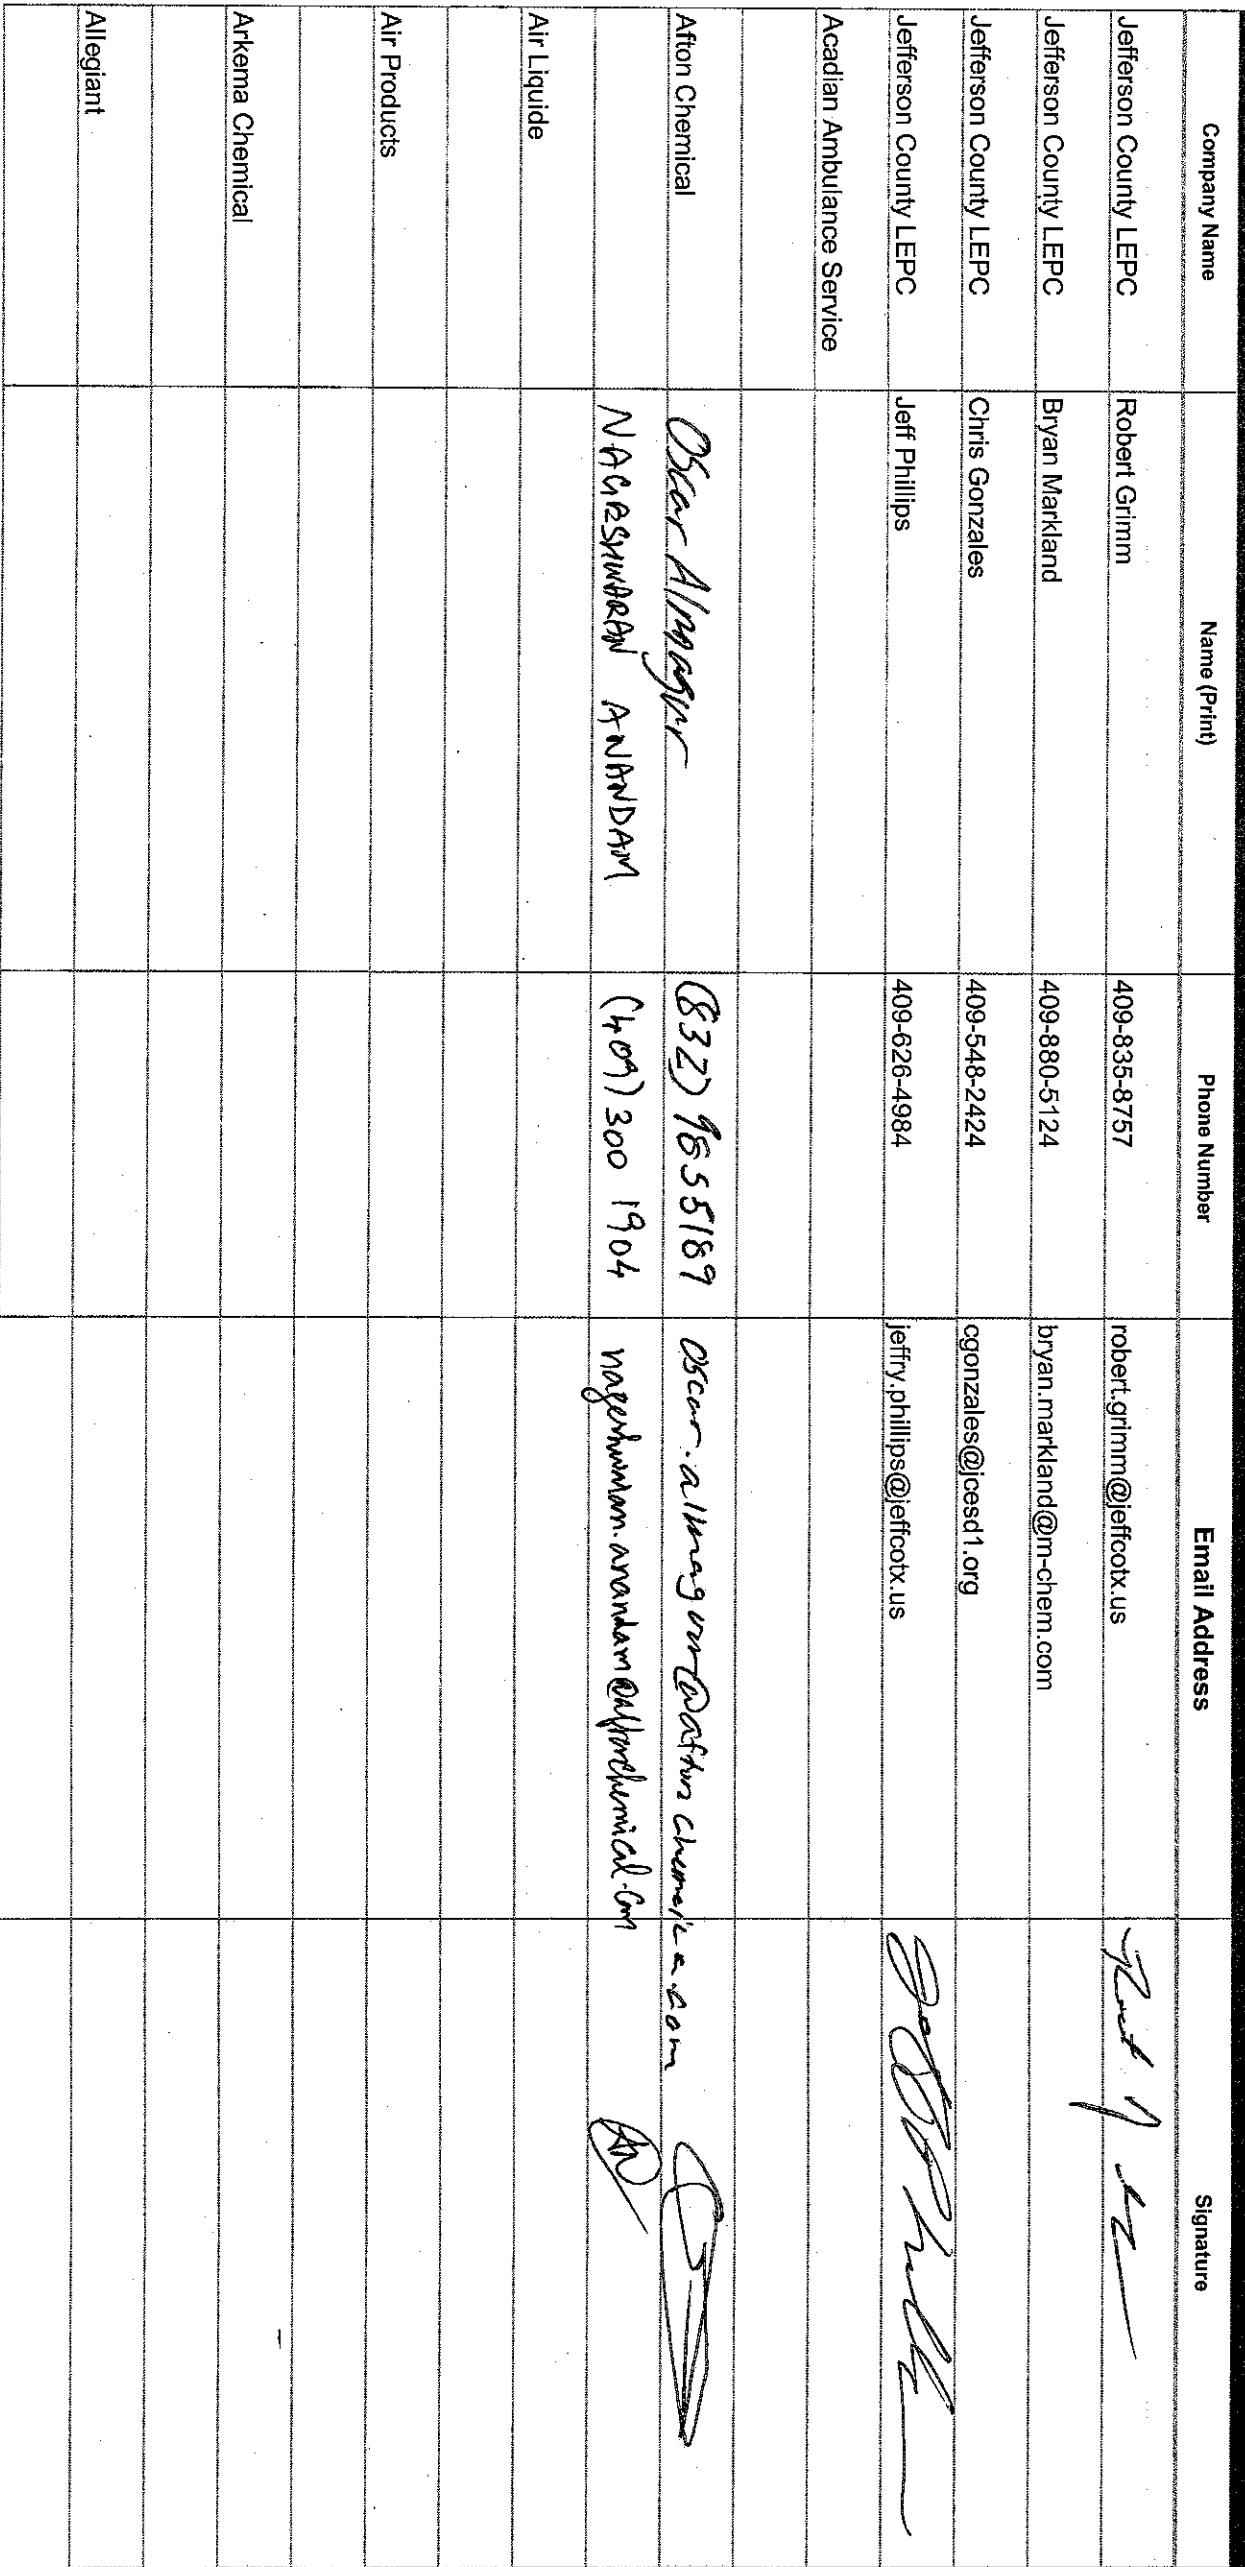 Company Name Name (Print) Phone Number Email Address Signature
Jefferson County LEPC Robert Grimm 409-835-8757 robert.grimm@jeffcotx.us
Jefferson County LEPC Bryan Markland 409-880-5124 bryan.markland@m-chem.com
Jefferson County LEPC Chris Gonzales 409-548-2424 cgonzales@jcesd1.org
Jefferson County LEPC Jeff Phillips 409-626-4984 jeffry.phillips@jeffcotx.us
Acadian Ambulance Service
Afton Chemical Oscar Almaguer (832)
NAGESHWARAN ANANDAM (409) 300 1904 nageshwaran.anandam@aftonchemical.com
Air Liquide
Air Products
Arkema Chemical
Allegiant